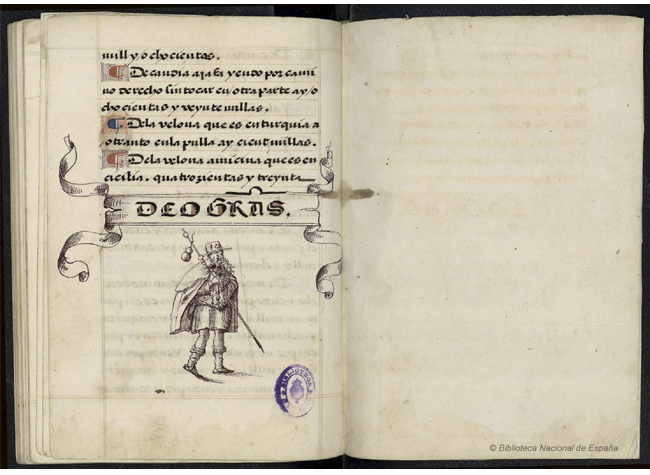 mill y ochocientas.
De candia a jafa yendo por cami
no derecho sin tocar en otra parte ay o
chocientas y veynte millas.
De la velona que es en turquia a
otranto en la pulla ay cient millas.
De la velona a micina que es en
cicilia. quatrozientas y treynta
DEO GRAS.
© Biblioteca Nacional de España